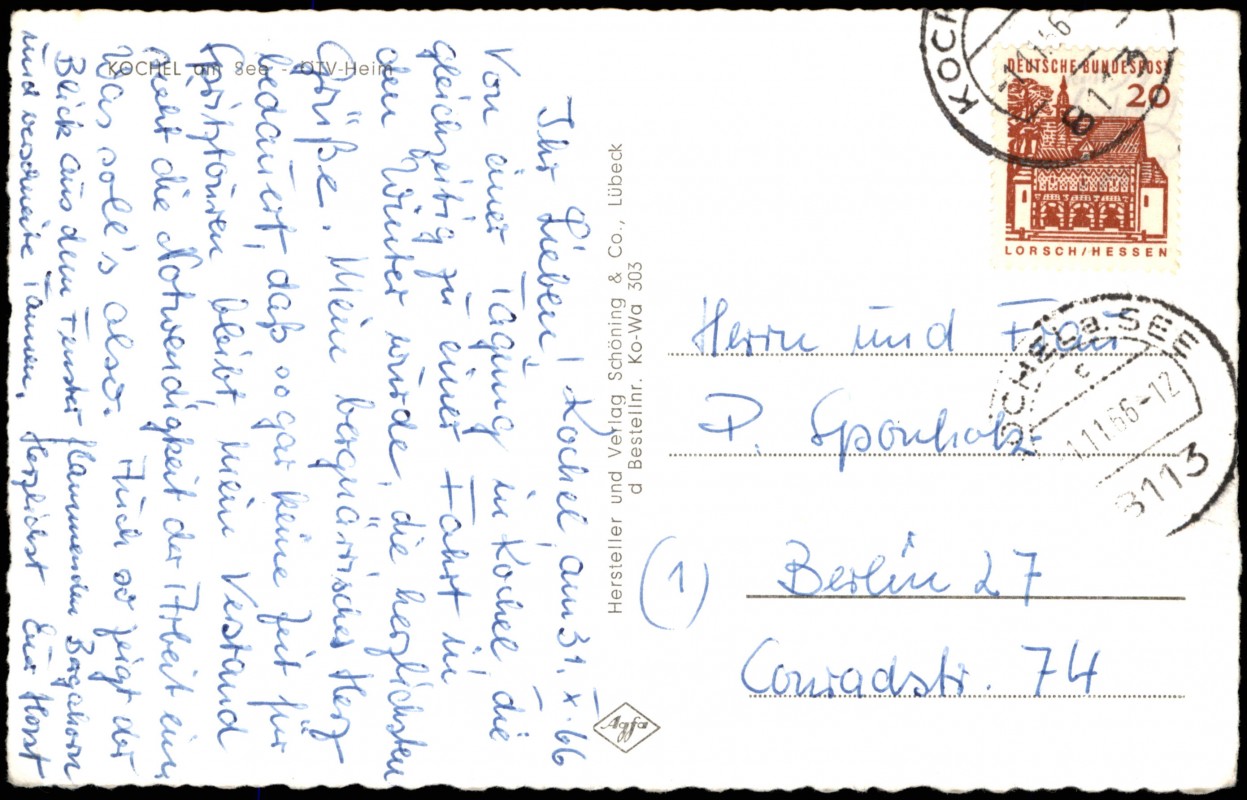 KOCHEL am See - ÖTV-Heim
Ihr Lieben! Kochel, am 31.X.66
Von einer Tagung in Kochel, die
gleichzeitig zu einer Fahrt in
den Winter wurde, die herzlichsten
Grüße. Mein bergnärrisches Herz
bedauert, daß sogar keine Zeit für
Spritztouren bleibt, mein Verstand
sieht die Notwendigkeit der Arbeit ein
Was soll's also. Auch so zeigt der
Blick aus dem Fenster flammenden Bergahorn
und verschneite Tannen. Herzlichst Euer Horst
Hersteller und Verlag Schöning & Co., Lübeck
d Bestellnr. Ko-Wa 303
Agfa
DEUTSCHE BUNDESPOST
20
LORSCH/HESSEN
KOCH
811
KOCHEL a. SEE
c
1.11.66-12
8113
Herrn und Frau
P. Sponholz
(1) Berlin 27
Conradstr. 74